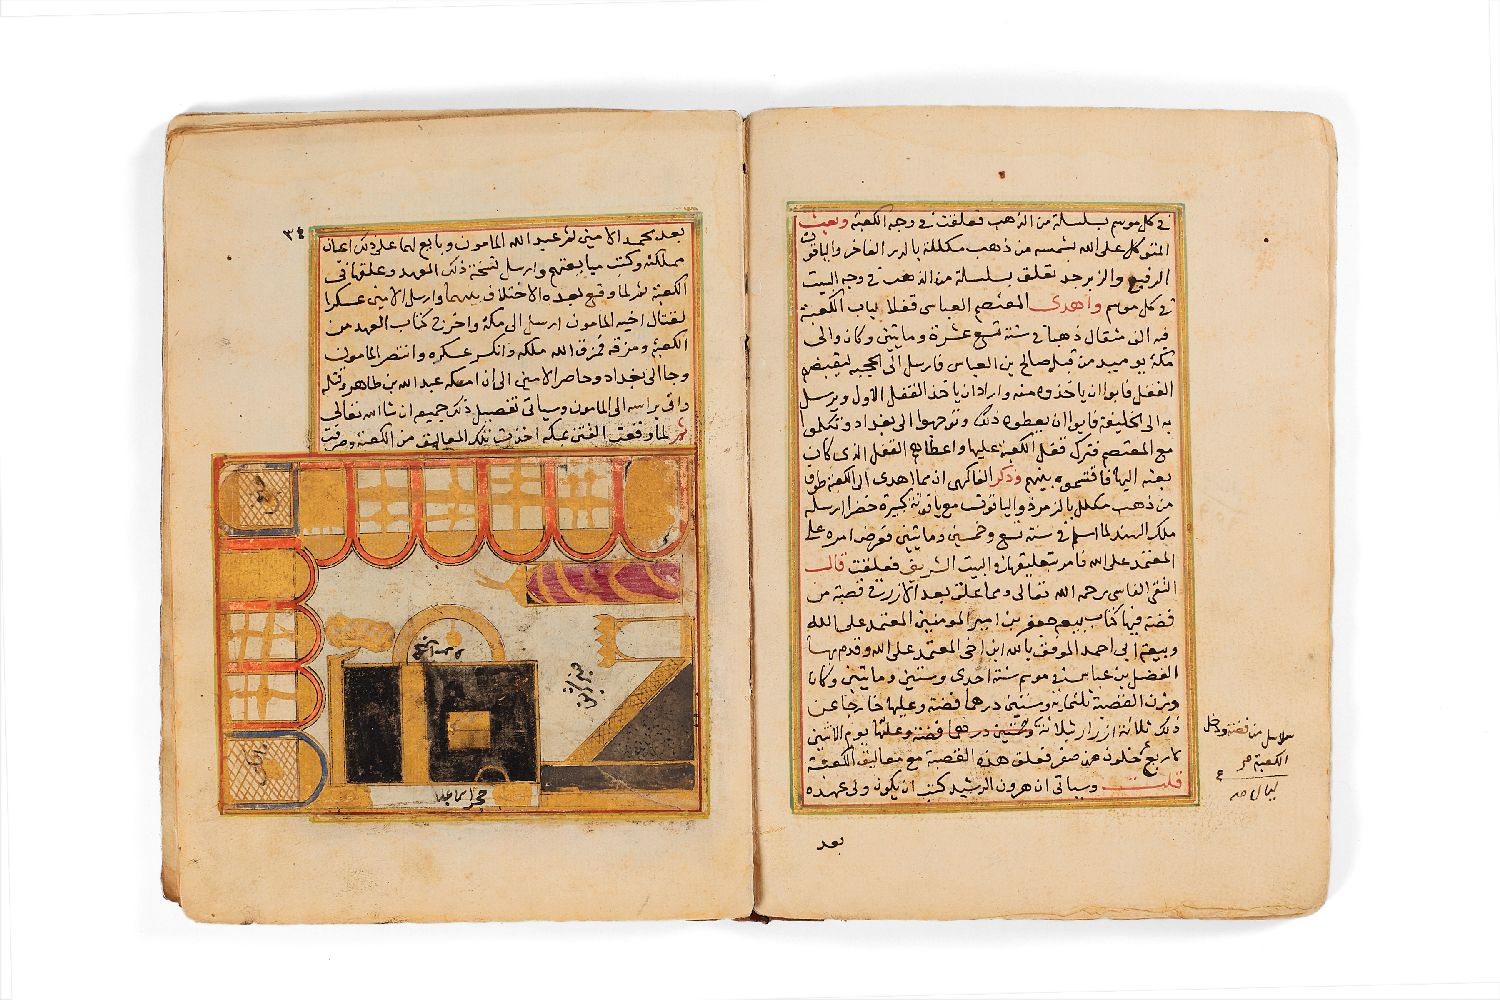 في كل موسم بسلسلة من الذهب فعلقت في وجه الكعبة وبعث
المتوكل على الله بشمسه من ذهب مكللة بالدر الفاخر والياقوت
الرفيع والزبرجد تعلق بسلسلة من الذهب في وجه البيت
في كل موسم وأهدى المعتصم العباسي قفلا لباب الكعبة
فيه الف مثقال ذهبا في سنة تسع عشرة ومايتين وكان والي
مكة يوميد من قبله صالح بن العباس فارسل الى الحجبة ليقبضهم
القفل فابوا ان ياخذوه منه واراد ان ياخذ القفل الاول ويرسل
به الى الخليفة فابوا ان يعطوه ذلك وتوجهوا الى بغداد وتكلموا
مع المعتصم فترك قفل الكعبة عليها واعطاهم القفل الذي كان
بعثه اليها فاقتسموه بينهم وذكر الفاكهي ان مما اهدي الى الكعبة طوق
من ذهب مكلل بالزمرذ والياقوت مع ياقوتة كبيرة خضرا ارسله
ملك الهند لما اسلم في سنة تسع وخمسين ومايتين فعرض امره على
المعتمد على الله فامر بتعليقها في البيت الشريف فعلقت قال
التقي الفاسي رحمه الله تعالى ومما علق بعد الازرقي قصبة من
فضة فيها كتاب بيعة جعفر بن امير المومنين المعتمد على الله
وبيعة ابي احمد الموفق بالله ابن اخي المعتمد على الله وقدم بها
الفضل بن عباس في موسم سنة احدى وستين ومايتين وكان
وزن القصبة ثلثماية وستين درهما فضة وعليها خارجا عن
ذلك ثلاثة ازرار بثلاثة وخمسين درهما فضة وعلقها يوم الاثنين
لاربع خلون من صفر فعلق هذه القصبة مع معاليق الكعبة
قلت وسياتي ان هرون الرشيد كتب ان يكون ولى عهده
سلاسل من فضة ودخل
الكعبة
بعد
٣٤
بعده محمد الامين ثم عبد الله المامون وبايع لهما على ذلك اعيان
مملكته وكتب مبايعتهم وارسل نسخة ذلك العهد وعلقها في
الكعبة ثم لما وقع بعده الاختلاف بينهما وارسل الامين عسكرا
لقتال اخيه المامون ارسل الى مكة واخرج كتاب العهد من
الكعبة ومزقه فمزق الله ملكه وانكسر عسكره وانتصر المامون
وجا الى بغداد وحاصر الامين الى ان امسكه عبد الله بن طاهر وقتله
واتي براسه الى المامون وسياتي تفصيل ذلك جميعه ان شا الله تعالى
ثم لما وقعت الفتن بمكة اخذت تلك المعاليق من الكعبة وصرفت
حجر اسماعيل